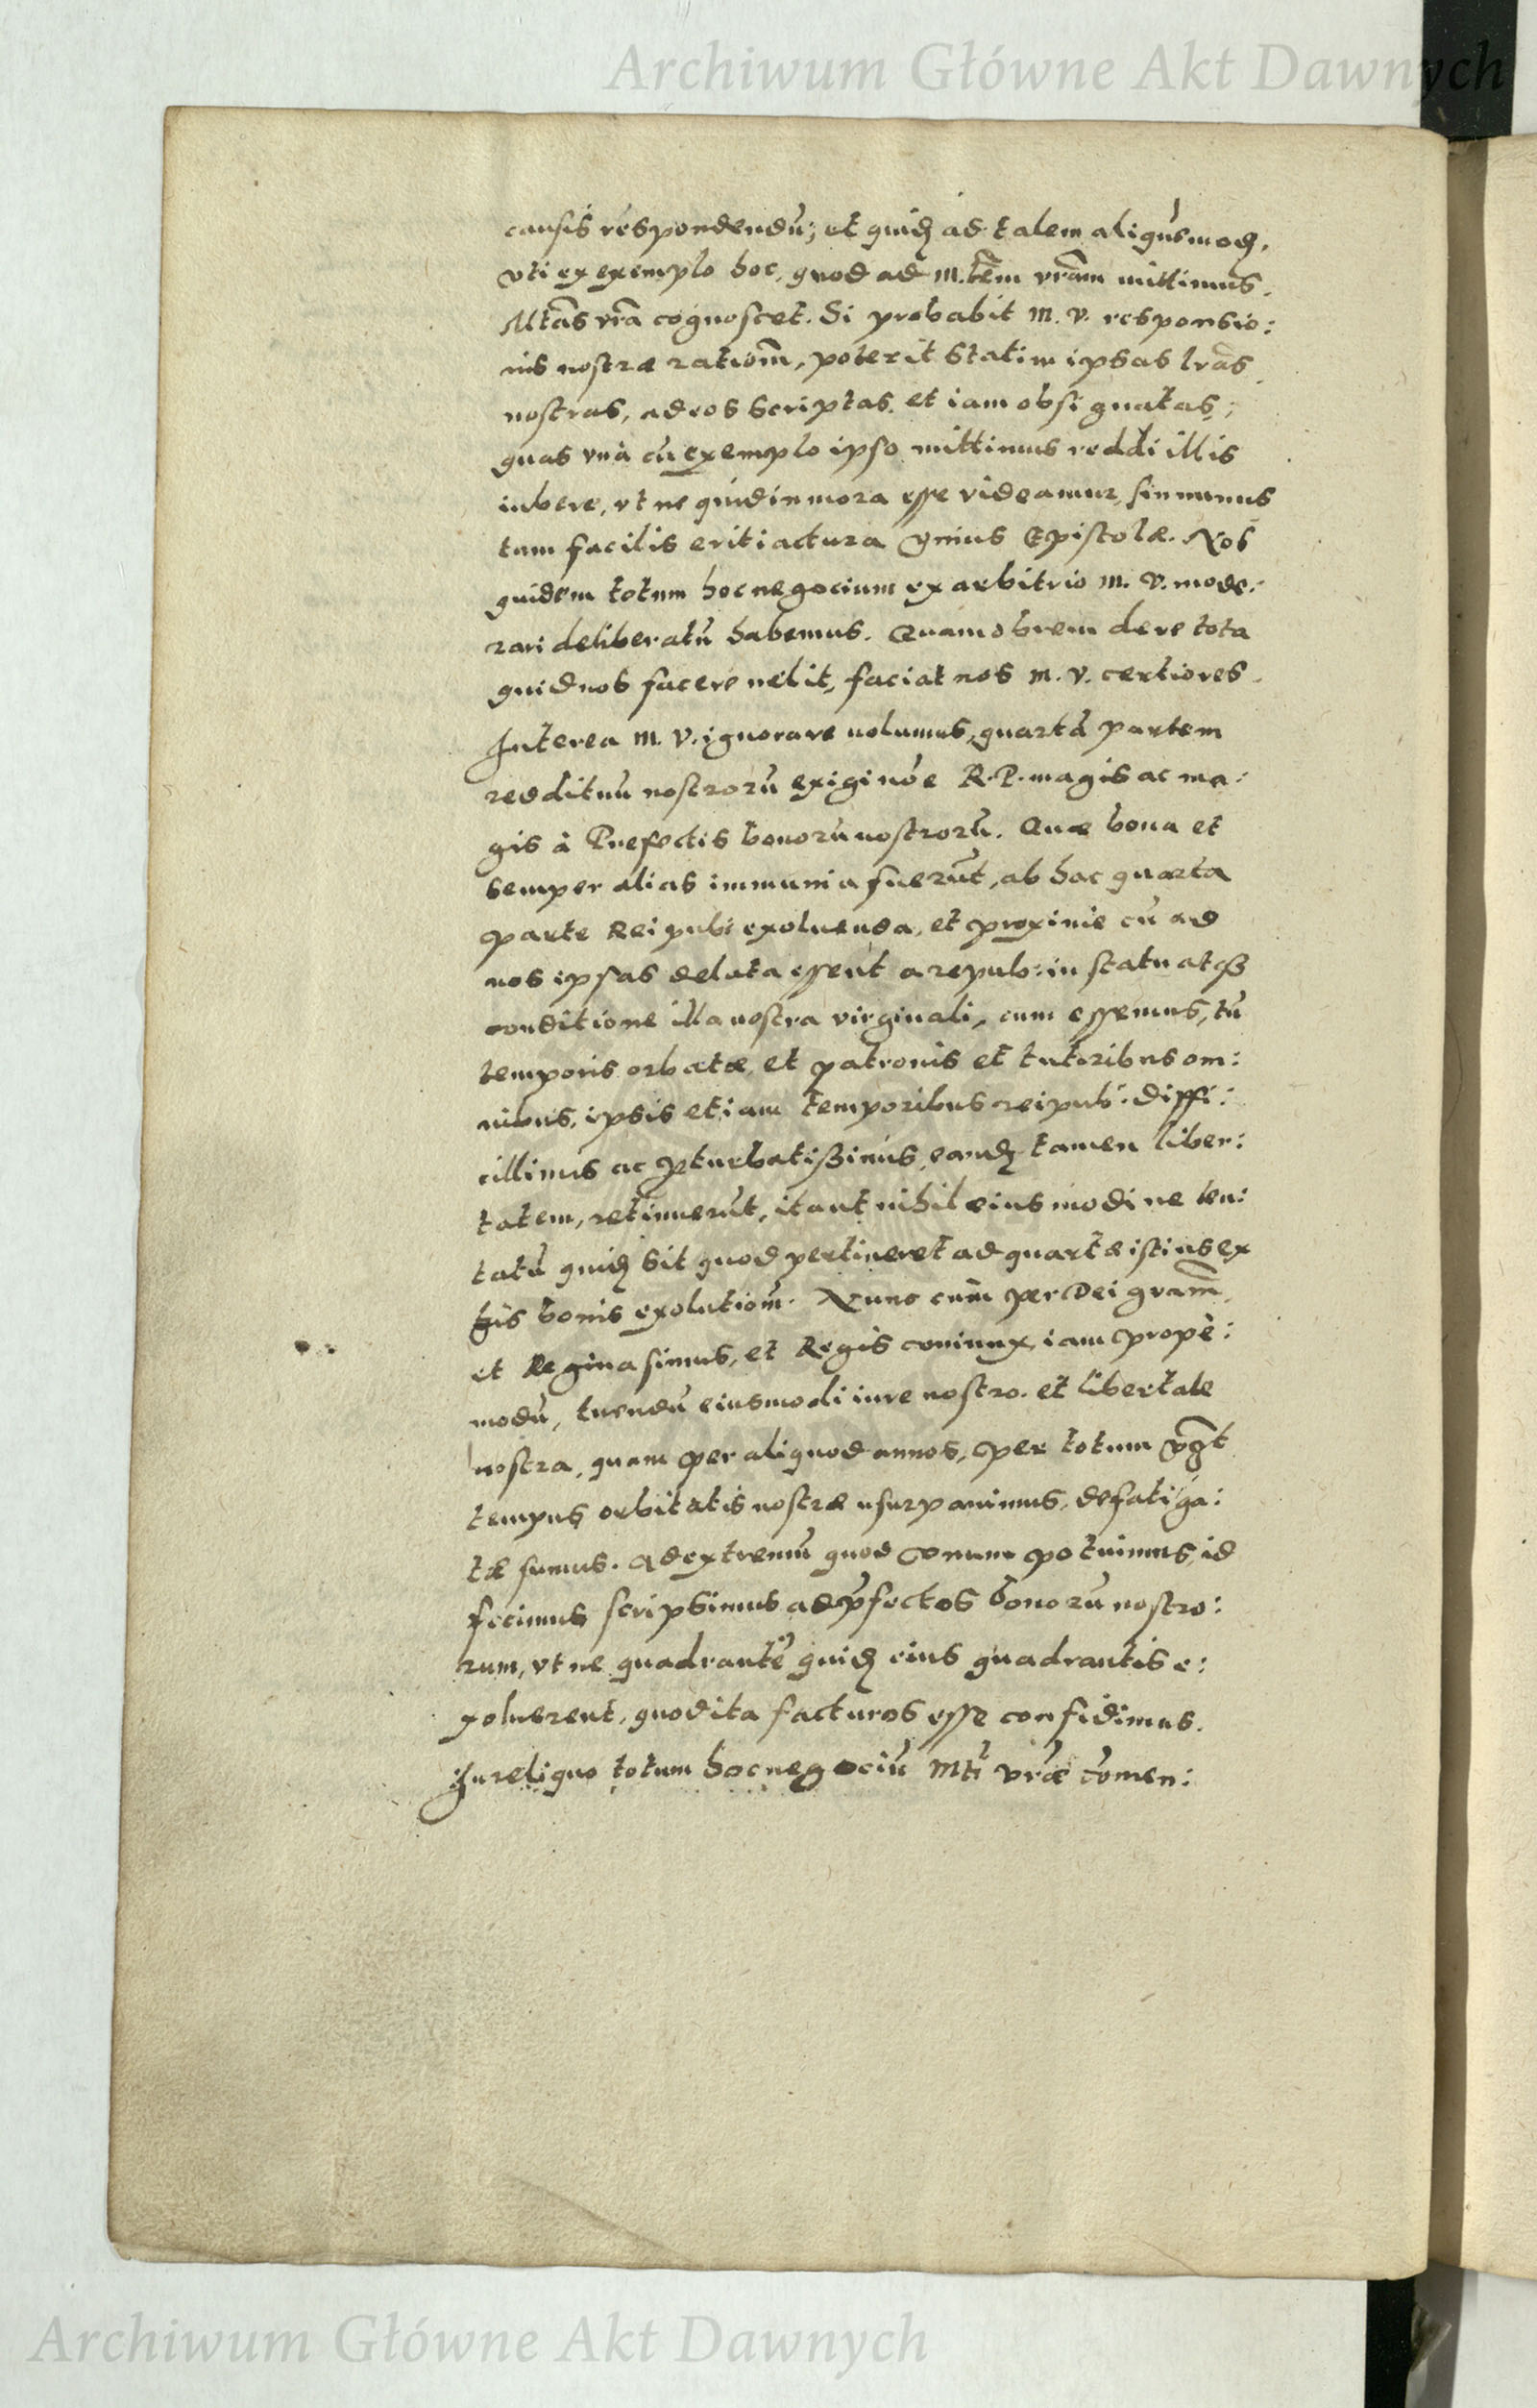 Archiwum Główne Akt Dawnych
causis respondendū; et quidẽ ad talem aliquẽ modũ,
vti ex exemplo hoc, quod ad M.tẽm vrãm mittimus,
Mtãs vrã cognoscet. Si probabit M. V. responsio:
nis nostræ rationẽ, poterit statim ipsas lrãs
nostras, ad eos scriptas, et iam obsignatas,
quas vnà cũ exemplo ipso mittimus reddi illis
iubere, vt ne quid in mora esse videamur, sin minus
tam facilis erit iactura vnius Epistolæ. Nos
quidem totum hoc negocium ex arbitrio M. V. mode:
rari deliberatũ habemus. Quamobrem de re tota
quid nos facere uelit, faciat nos M. V. certiores.
Interea M. V. ignorare nolumus, quartã partem
reddituũ nostrorũ exigi nõe R. P. magis ac ma:
gis à Prefectis bonorũ nostrorũ. Quæ bona et
semper alias immunia fuerũt, ab hac quarta
parte Reipub: exoluenda, et proxime cũ ad
nos ipsas delata essent a repub: in statu atq3
conditione illa nostra virginali, cum essemus, tũ
temporis orbatæ, et patronis et tutoribus om:
nibus, ipsis etiam temporibus reipub: diffi:
cillimis ac pturbatißimis, eandẽ tamen liber:
tatem, retinuerũt, ita ut nihil eiusmodi ne ten:
tatũ quidẽ sit quod pertineret ad quartæ istius ex
his bonis exolutionẽ. Nunc cum per Dei gratiã,
et Regina simus, et Regis coniunx, iam prope:
modũ, tuendũ eiusmodi iure nostro. et libertate
nostra, quam per aliquod annos, per totum
tempus orbitatis nostræ usurpauimus, defatiga:
tæ sumus. Ad extremũ quod vnum potuimus, id
fecimus scripsimus ad pfectos bonorũ nostro:
rum, vt ne quadrantẽ quidẽ eius quadrantis e:
xoluerent, quod ita facturos esse confidimus.
In reliquo totum hoc negociũ Mti vræ cõmen:
Archiwum Główne Akt Dawnych